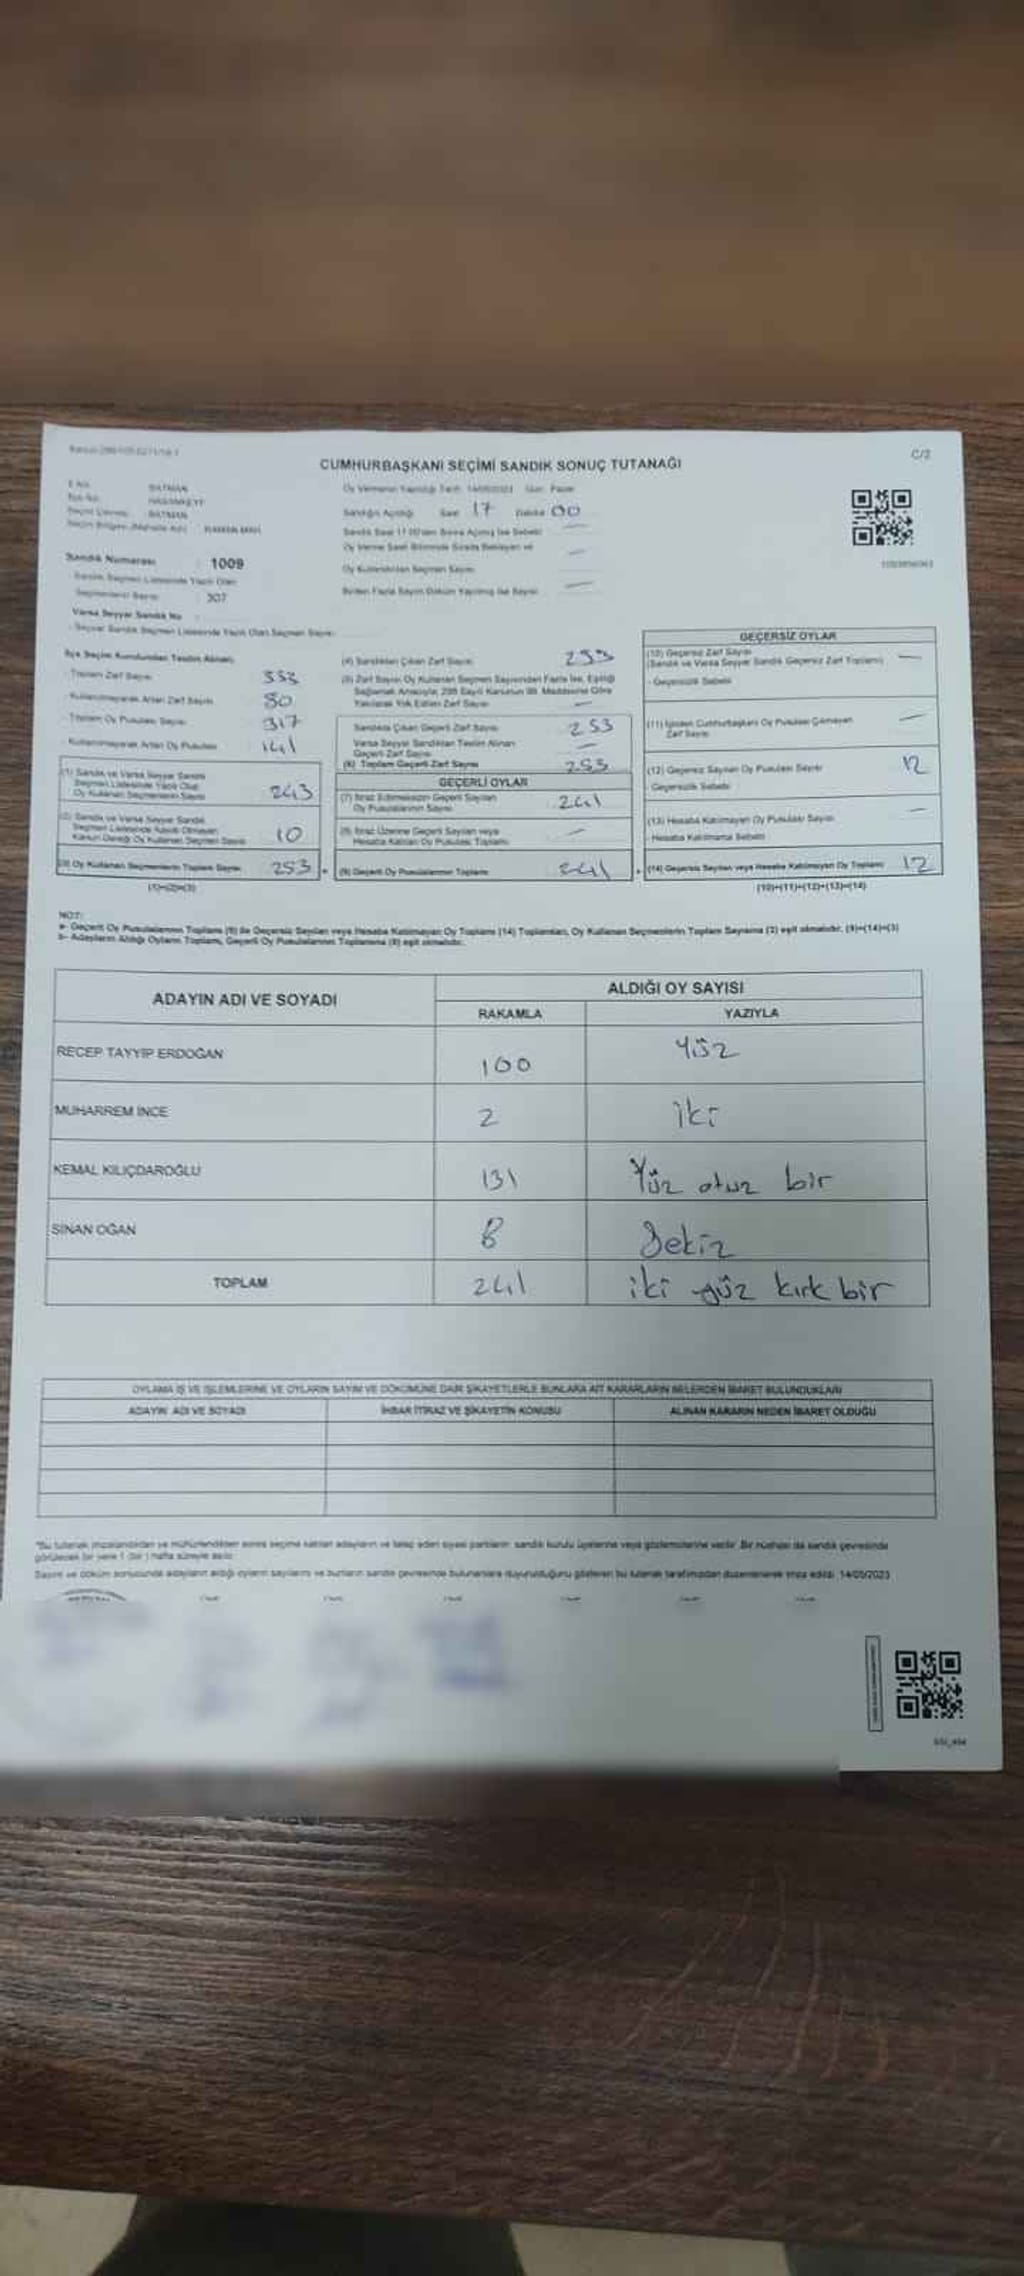 C/2
CUMHURBAŞKANI SEÇİMİ SANDIK SONUÇ TUTANAĞI
İl Adı BATMAN
İlçe Adı HASANKEYF
Seçim Çevresi BATMAN
Oy Vermenin Yapıldığı Tarih: 14/05/2023 Gün: Pazar
Sandığın Açıldığı Saat 17 Dakika 00
Oy Kullandırılan Seçmen Sayısı
Birden Fazla Sayım Döküm Yapılmış İse Sayısı
Sandık Numarası : 1009
Sandık Seçmen Listesinde Yazılı Olan
Seçmenlerin Sayısı 307
Varsa Seyyar Sandık No
- Seyyar Sandık Seçmen Listesinde Yazılı Olan Seçmen Sayısı
İlçe Seçim Kurulundan Teslim Alınan
- Toplam Zarf Sayısı 333
- Kullanılmayarak Artan Zarf Sayısı 80
- Toplam Oy Pusulası Sayısı 317
- Kullanılmayarak Artan Oy Pusulası 141
(1) Sandık ve Varsa Seyyar Sandık
Seçmen Listesinde Yazılı Olup
Oy Kullanan Seçmenlerin Sayısı 243
Kanun Gereği Oy Kullanan Seçmen Sayısı 10
(3) Oy Kullanan Seçmenlerin Toplam Sayısı 253
(1)+(2)=(3)
(4) Sandıktan Çıkan Zarf Sayısı 253
(5) Zarf Sayısı Oy Kullanan Seçmen Sayısından Fazla İse, Eşitliği
Sağlamak Amacıyla, 298 Sayılı Kanunun 98. Maddesine Göre
Yakılarak Yok Edilen Zarf Sayısı —
Sandıkta Çıkan Geçerli Zarf Sayısı 253
Varsa Seyyar Sandıktan Teslim Alınan
Geçerli Zarf Sayısı —
(6) Toplam Geçerli Zarf Sayısı 253
GEÇERLİ OYLAR
(7) İtiraz Edilmeksizin Geçerli Sayılan
Oy Pusulalarının Sayısı 241
(8) İtiraz Üzerine Geçerli Sayılan veya
Hesaba Katılan Oy Pusulası Toplamı —
(9) Geçerli Oy Pusulalarının Toplamı 241
GEÇERSİZ OYLAR
(10) Geçersiz Zarf Sayısı
(Sandık ve Varsa Seyyar Sandık Geçersiz Zarf Toplamı) —
- Geçersizlik Sebebi
(11) İçinden Cumhurbaşkanı Oy Pusulası Çıkmayan
Zarf Sayısı —
(12) Geçersiz Sayılan Oy Pusulası Sayısı 12
- Geçersizlik Sebebi
(13) Hesaba Katılmayan Oy Pusulası Sayısı —
- Hesaba Katılmama Sebebi
(14) Geçersiz Sayılan veya Hesaba Katılmayan Oy Toplamı 12
(10)+(11)+(12)+(13)=(14)
NOT:
a- Geçerli Oy Pusulalarının Toplamı (9) ile Geçersiz Sayılan veya Hesaba Katılmayan Oy Toplamı (14) Toplamları, Oy Kullanan Seçmenlerin Toplam Sayısına (3) eşit olmalıdır. (9)+(14)=(3)
b- Adayların Aldığı Oyların Toplamı, Geçerli Oy Pusulalarının Toplamına (9) eşit olmalıdır.
ADAYIN ADI VE SOYADI
ALDIĞI OY SAYISI
RAKAMLA YAZIYLA
RECEP TAYYİP ERDOĞAN 100 Yüz
MUHARREM İNCE 2 iki
KEMAL KILIÇDAROĞLU 131 Yüz otuz bir
SİNAN OĞAN 8 Sekiz
TOPLAM 241 iki yüz kırk bir
OYLAMA İŞ VE İŞLEMLERİNE VE OYLARIN SAYIM VE DÖKÜMÜNE DAİR ŞİKAYETLERLE BUNLARA AİT KARARLARIN NELERDEN İBARET BULUNDUKLARI
ADAYIN ADI VE SOYADI İHBAR İTİRAZ VE ŞİKAYETİN KONUSU ALINAN KARARIN NEDEN İBARET OLDUĞU
*Bu tutanak imzalandıktan ve mühürlendikten sonra seçime katılan adayların ve talep eden siyasi partilerin sandık kurulu üyelerine veya gözlemcilerine verilir. Bir nüshası da sandık çevresinde
görülecek bir yere 1 (bir) hafta süreyle asılır.
Sayım ve döküm sonucunda adayların aldığı oyların sayılarını ve bunların sandık çevresinde bulunanlara duyurulduğunu gösteren bu tutanak tarafımızdan düzenlenerek imza edildi. 14/05/2023